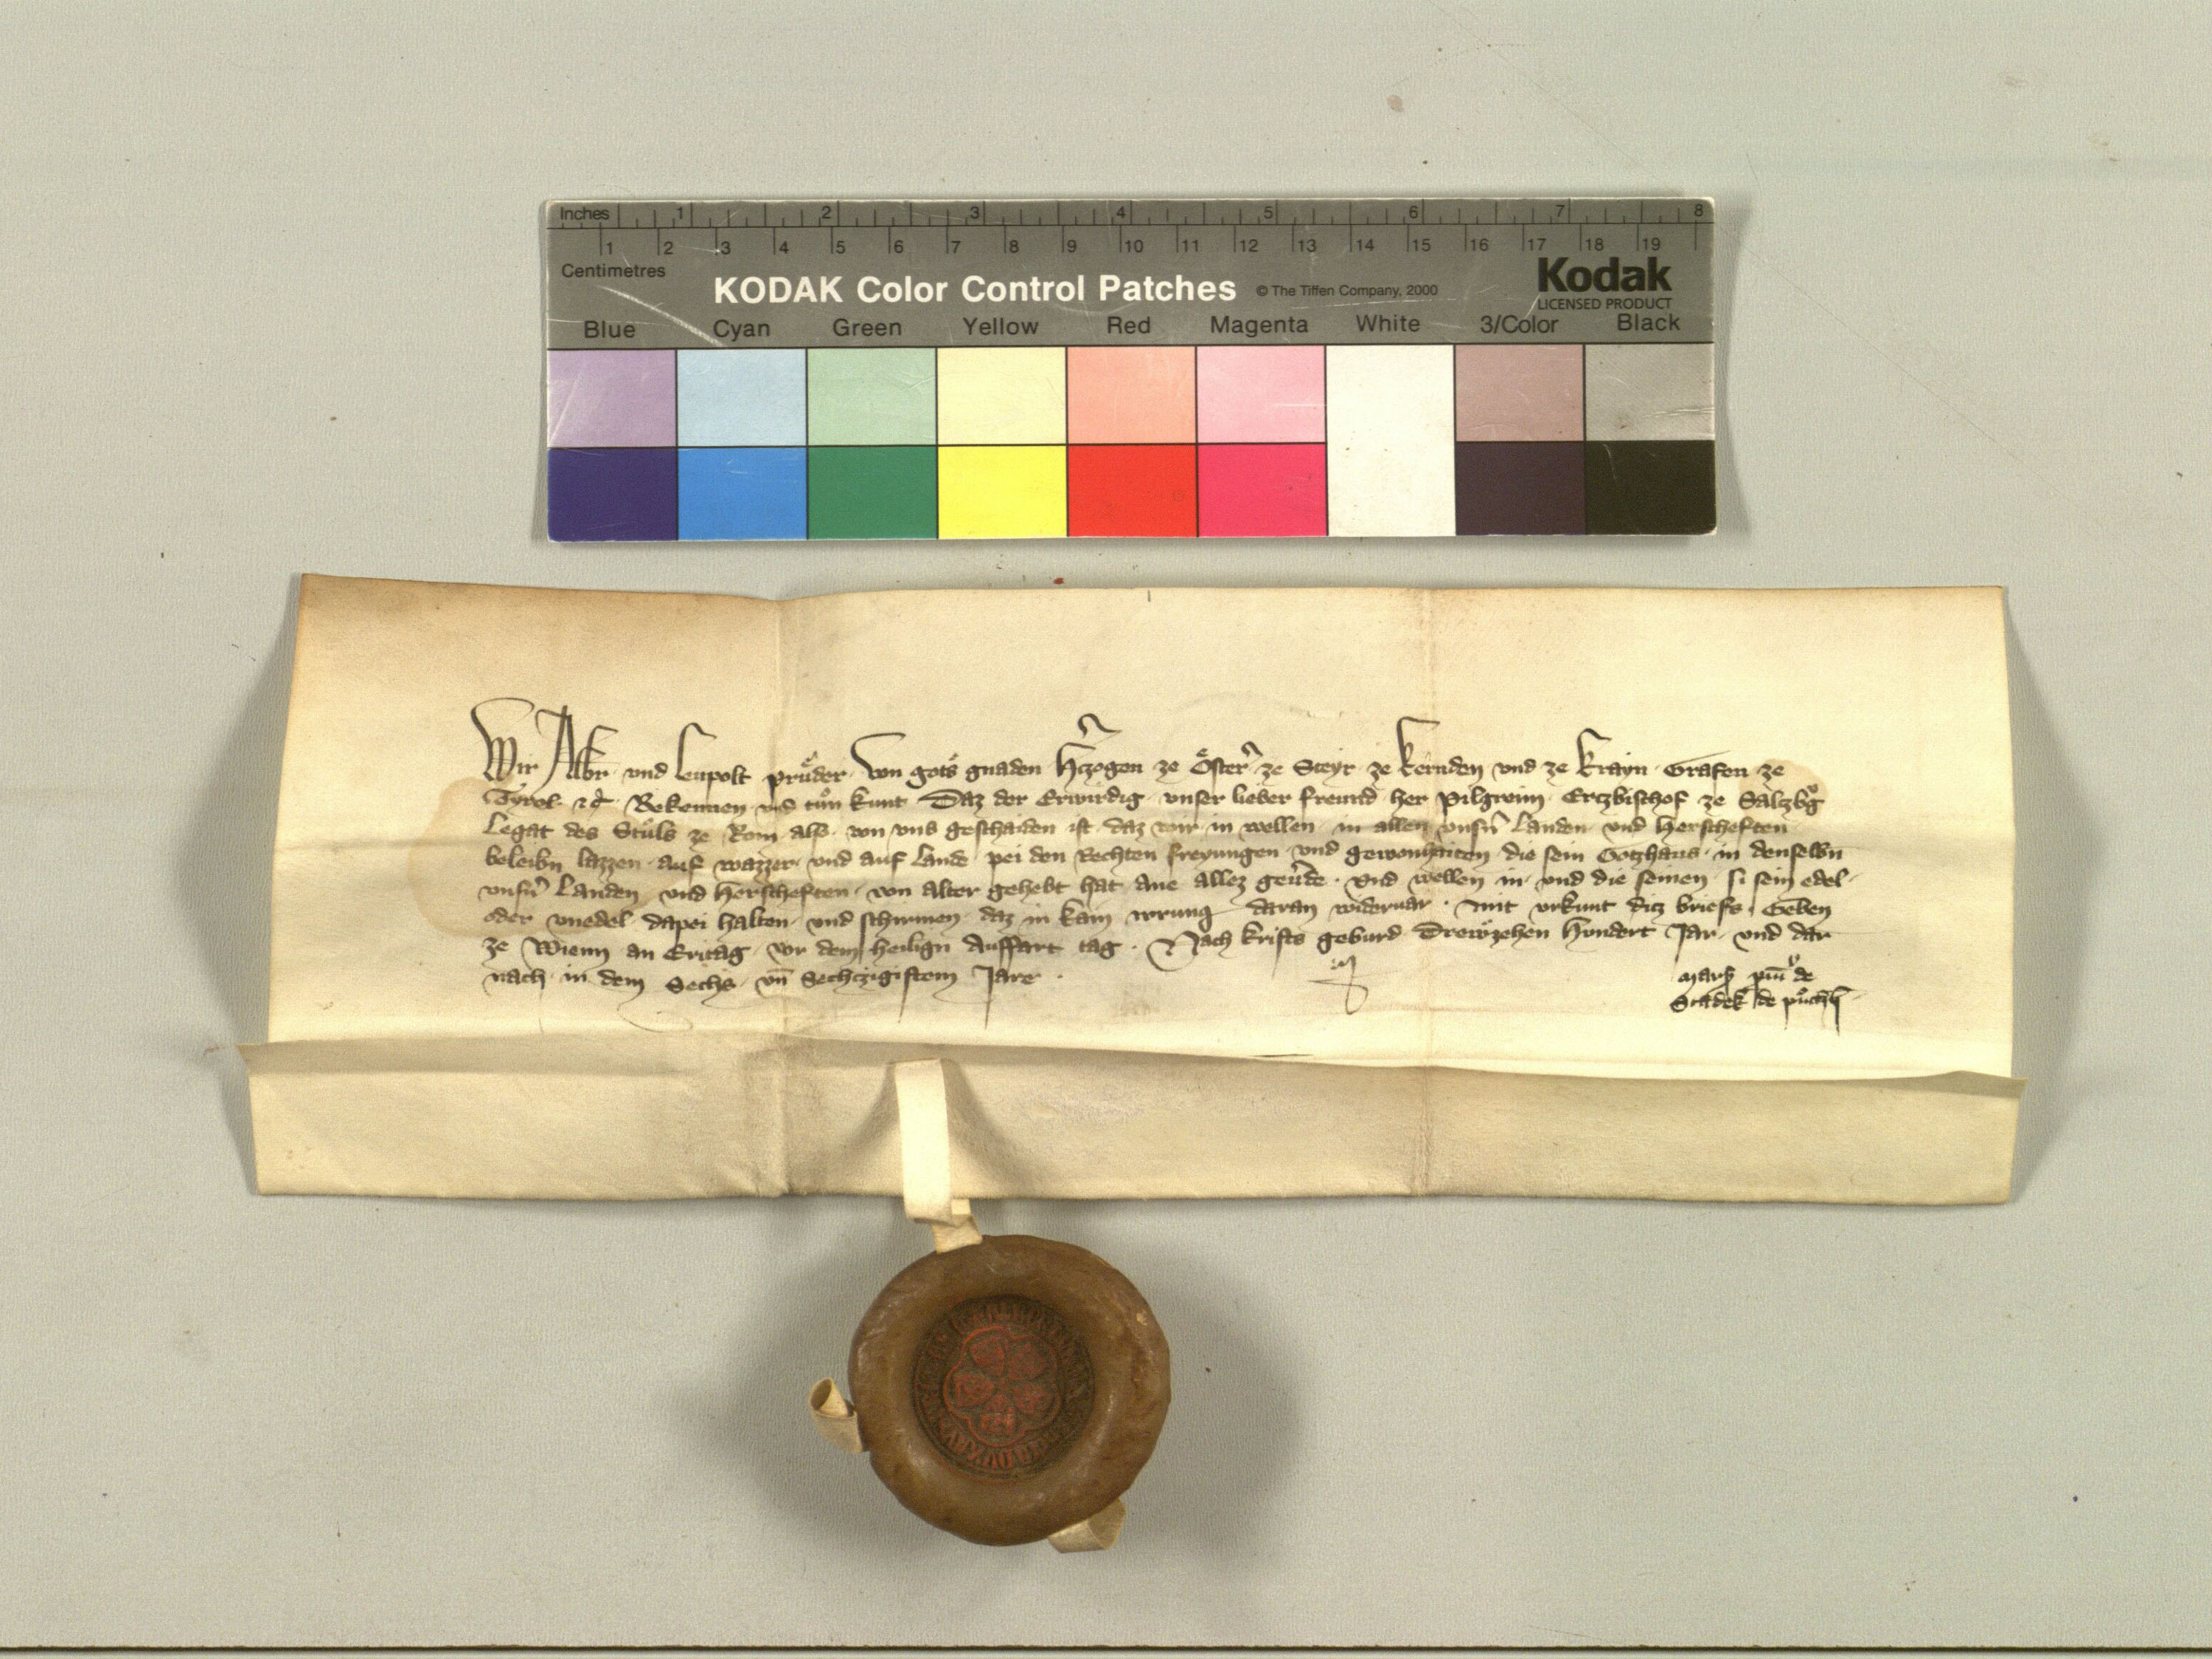 Inches 1 2 3 4 5 6 7 8
1 2 3 4 5 6 7 8 9 10 11 12 13 14 15 16 17 18 19
Centimetres
KODAK Color Control Patches © The Tiffen Company, 2000 Kodak
LICENSED PRODUCT
Blue Cyan Green Yellow Red Magenta White 3/Color Black
Wir Albr̄ · vnd Leupolt průder · von gots gnaden Hˀczogen ze Ősterˀ ze Steyr · ze Kernden vnd ze Krayn · Grafen ze
Tyrol · ⁊c̄ · Bekennen vnd tůn kunt · Daz der Erwirdig · vnser lieber freund · her Pilgreim · Erczbischof · ze Salczbg
Legat des Stůls ze Rom · als · von vns geschaiden ist · daz wir in wellen · in allen vnsñ Landen · vnd Herscheften
beleibn lazzen · auf wazzer · vnd auf Lande · pei den Rechten freyungen · vnd gewonhaiten · die sein Gotzhaus · in denselbn
vnsñ Landen · vnd Herscheften · von alter gehebt hat ane allez geuˀde · vnd wellen in · vnd die seinen · si sein edel ·
oder vnedel · dapei halten · vnd schirmen · daz in kain irrung daran wideruar · mit vrkunt dicz briefs · Geben
ze Wienn an Eritag · vor dem heilign Auffart tag · Nach Krists geburd Drewzehen Hundert Jar · vnd dar
nach · in dem Sechs · vn̄ Sechczigistem Jare ·
de
de